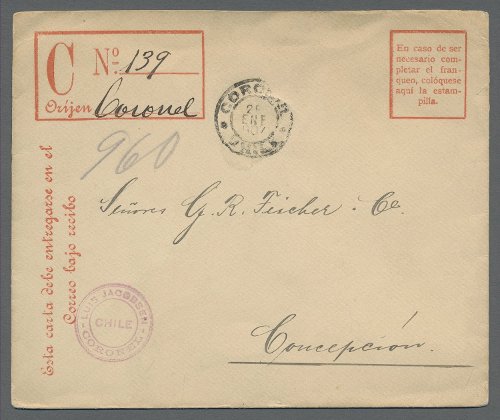 C Nº 139
Oríjen Coronel
En caso de ser
necesario com-
pletar el fran-
queo, colóquese
aquí la estam-
pilla.
CORONEL
26
ENE
CHILE
960
Esta carta debe entregarse en el
Correo bajo recibo
Señores G. R. Fischer & Co.
LUIS JACOBSEN
CHILE
CORONEL
Concepción.